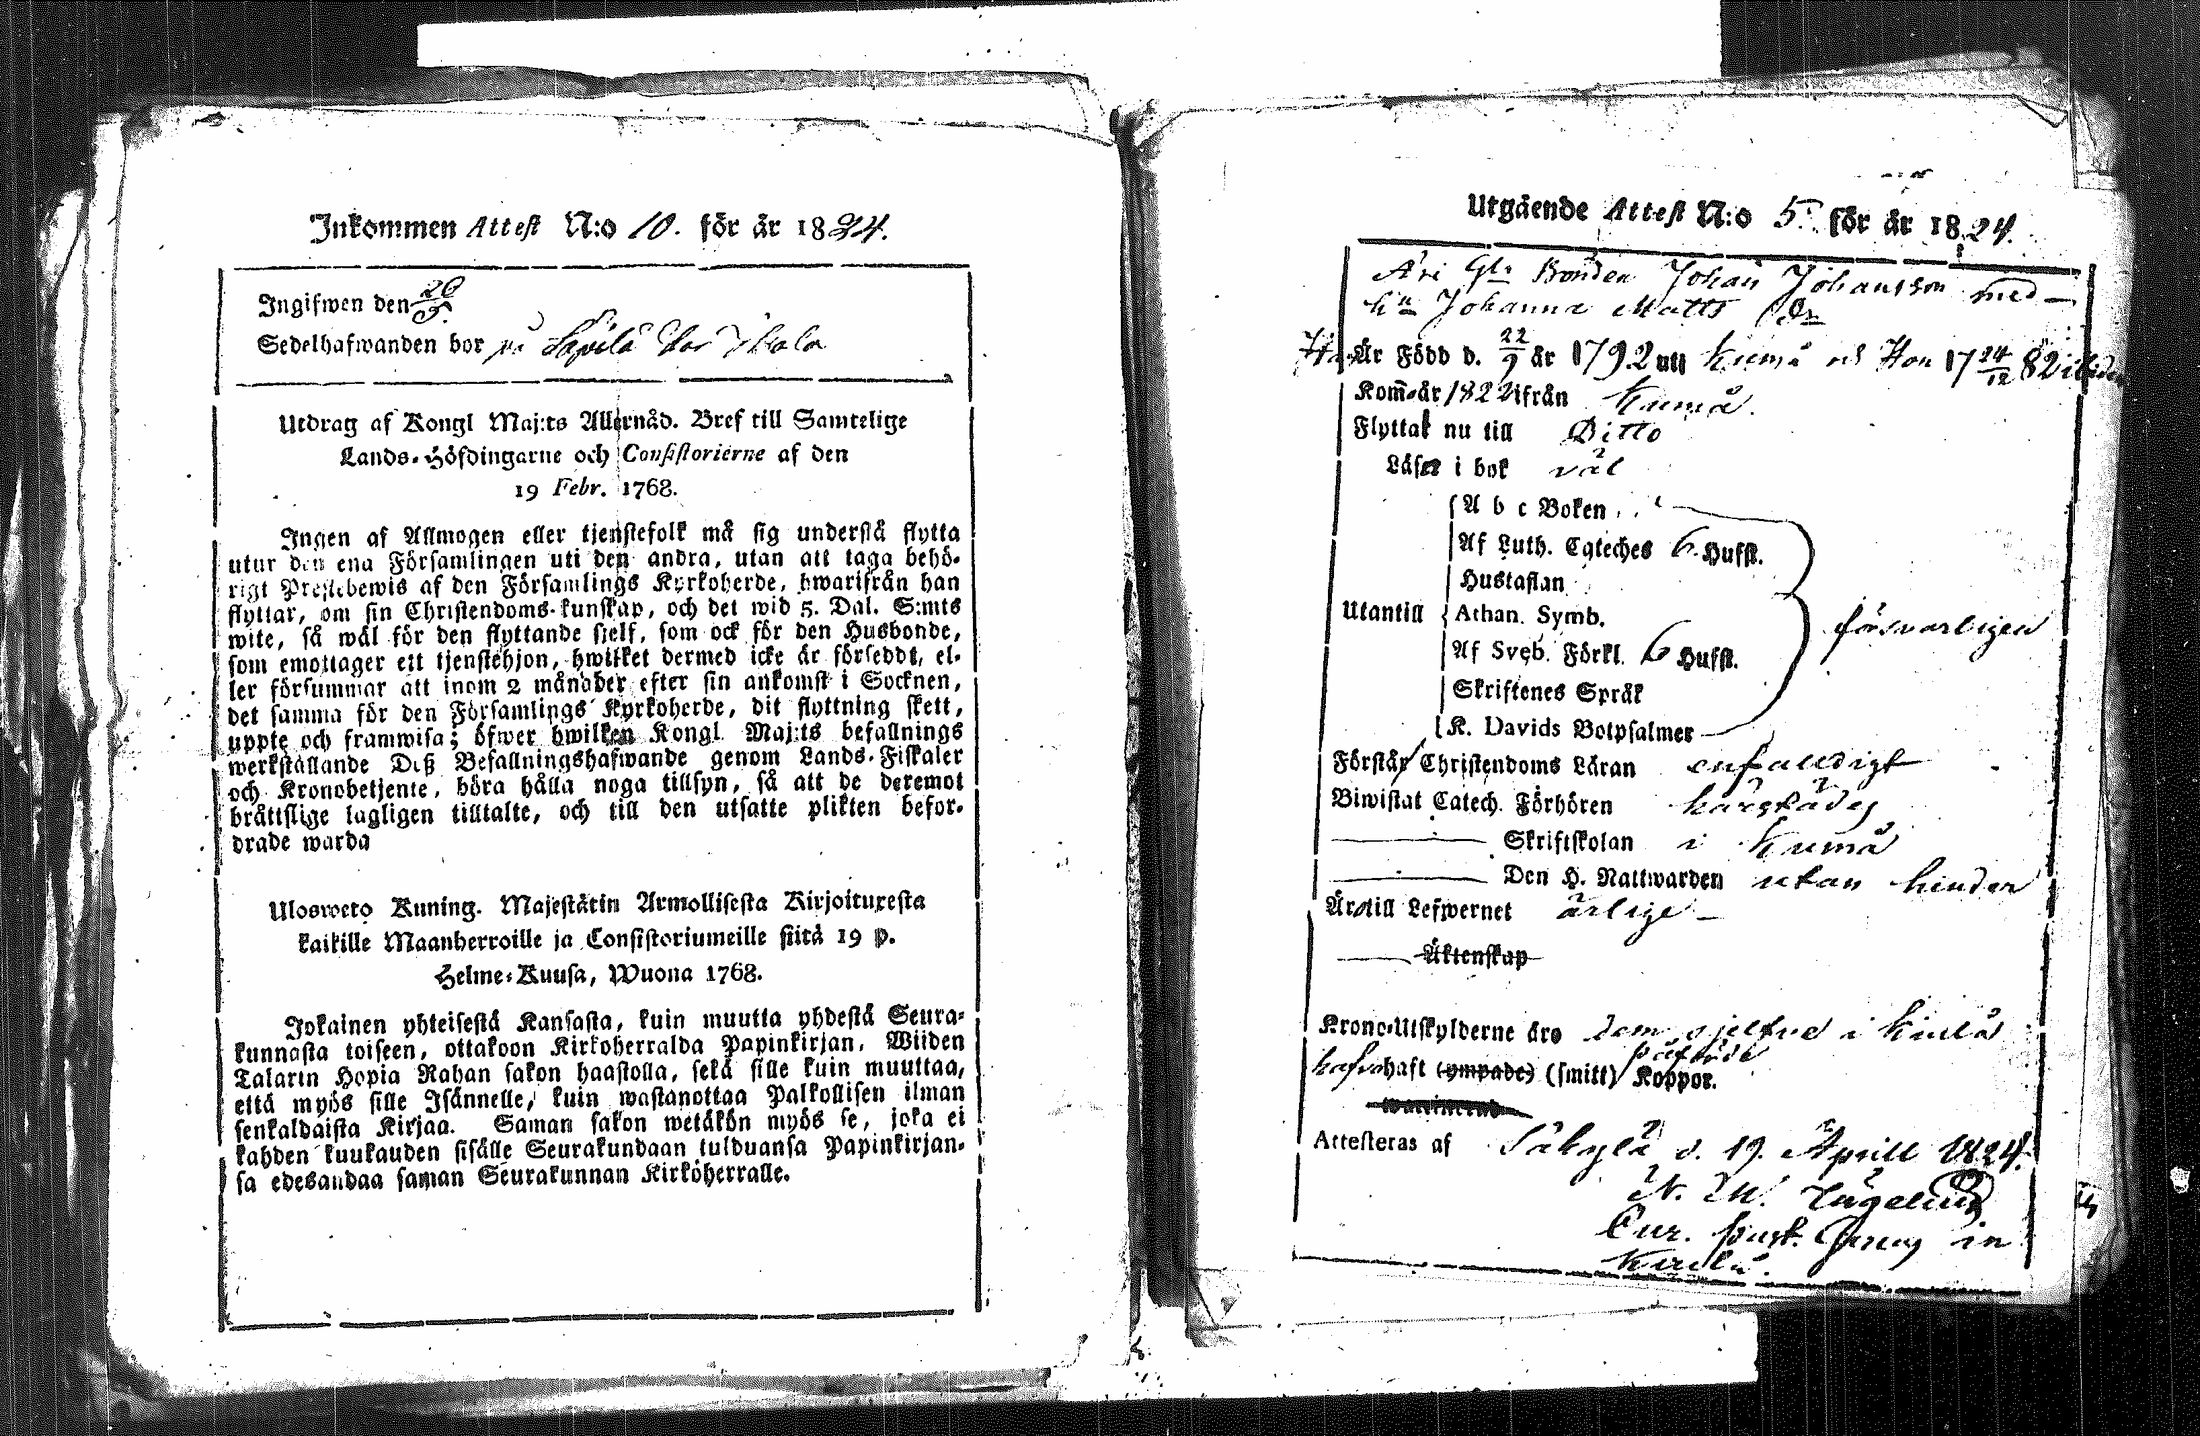 Inkommen Attest N:o 10. för år 1824.
Ingifwen den 26/5.
Sedelhafwanden bor på
Utdrag af Kongl Maj:ts Allernåd. Bref till Samtelige
Lands-Höfdingarne och Consistorierne af den
19 Febr. 1768.
Ingen af Allmogen eller tjenstefolk må sig understå flytta
utur den ena Församlingen uti den andra, utan att taga behö-
rigt Prestebewis af den Församlings Kyrkoherde, hwarifrån han
flyttar, om sin Christendoms-kunskap, och det wid 5. Dal. S:mts
wite, så wäl för den flyttande sjelf, som ock för den Husbonde,
som emottager ett tjenstehjon, hwilket dermed icke är försedt, el-
ler försummar att inom 2 månader efter sin ankomst i Socknen,
det samma för den Församlings Kyrkoherde, dit flyttning skett,
uppte och framwisa; öfwer hwilken Kongl Maj:ts befallnings
werkställande Deß Befallningshafwande genom Lands-Fiskaler
och Kronobetjente, böra hålla noga tillsyn, så att de deremot
bråttslige lagligen tilltalte, och till den utsatte plikten befor-
drade warda
Uloswets Kuning. Majestätin Armollisesta Kirjoituxesta
kaikille Maanherroille ja Consistoriumeille siitä 19 p.
Helme-Kuusa, Wuona 1768.
Jokainen yhteisestä Kansasta, kuin muutta yhdestä Seura-
kunnasta toiseen, ottakoon Kirkoherralda Papinkirjan, Wiiden
Talarin Hopia Rahan sakon haastolla, sekä sille kuin muuttaa,
että myös sille Isännelle, kuin wastanottaa Palkollisen ilman
senkaldaista Kirjaa. Saman sakon wetäkön myös se, joka ei
kahden kuukauden sisälle Seurakundaan tulduansa Papinkirjan-
sa edesandaa saman Seurakunnan Kirkoherralle.
Utgående Attest N:o 5. för år 1824.
Bonden Johan Johansson med
h:u Johanna Matts Dr
Är Född d. 22/9 år 1792 uti Kumå och Hon 17 24/12 82
Kom̃ år 1822 ifrån Kumå.
Flyttar nu till Ditto
Läser i bok väl
A b c Boken
Af Luth. Cateches 6. Hufst.
Hustaflan
Utantill Athan. Symb. försvarligen
Af Sveb. Förkl. 6 Hufst.
Skriftenes Språk
K. Davids Botpsalmer
Förstår Christendoms Läran enfaldigt
Biwistat Catech. Förhören härstädes
Skriftskolan i Kumå
Den H. Nattwarden utan hinder
Är till Lefwernet ärlige
Äktenskap
Krono-Utskylderne äro dem i Kiulå
påförde
hafva haft (ympade) (smitt) Koppor.
Attesteras af Säkylä d. 19. Aprill 1824.
N. M.
in
Kiulå.